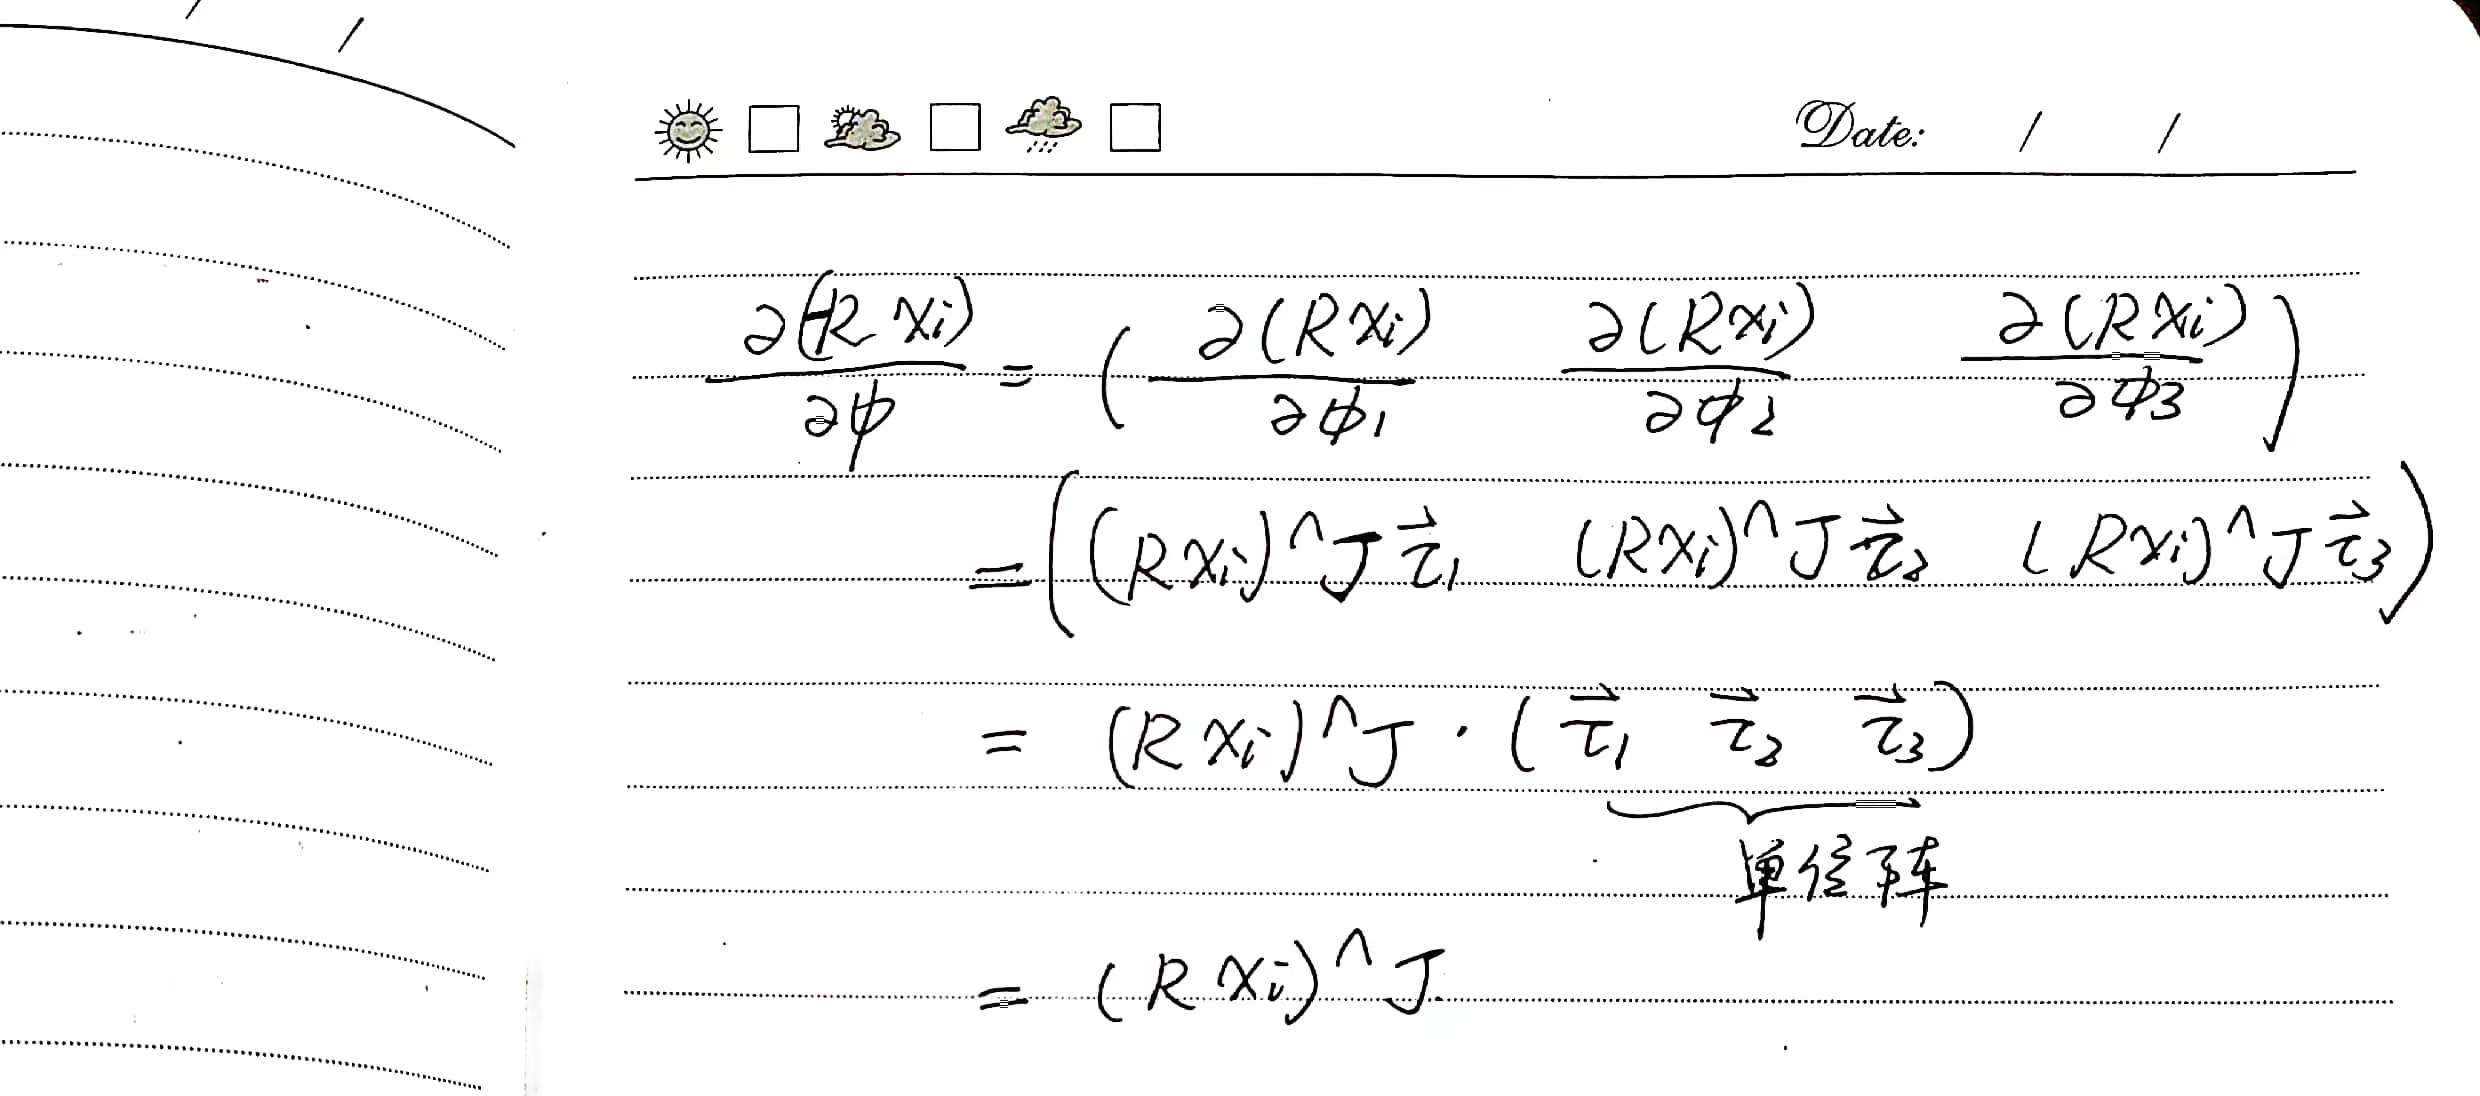 Date: / /
∂(R xi)/∂ϕ = ( ∂(R xi)/∂ϕ1 ∂(R xi)/∂ϕ2 ∂(R xi)/∂ϕ3 )
= ( (R xi)^ J τ⃗1 (R xi)^ J τ⃗2 (R xi)^ J τ⃗3 )
= (R xi)^ J · ( τ⃗1 τ⃗2 τ⃗3 )
单位阵
= (R xi)^ J.